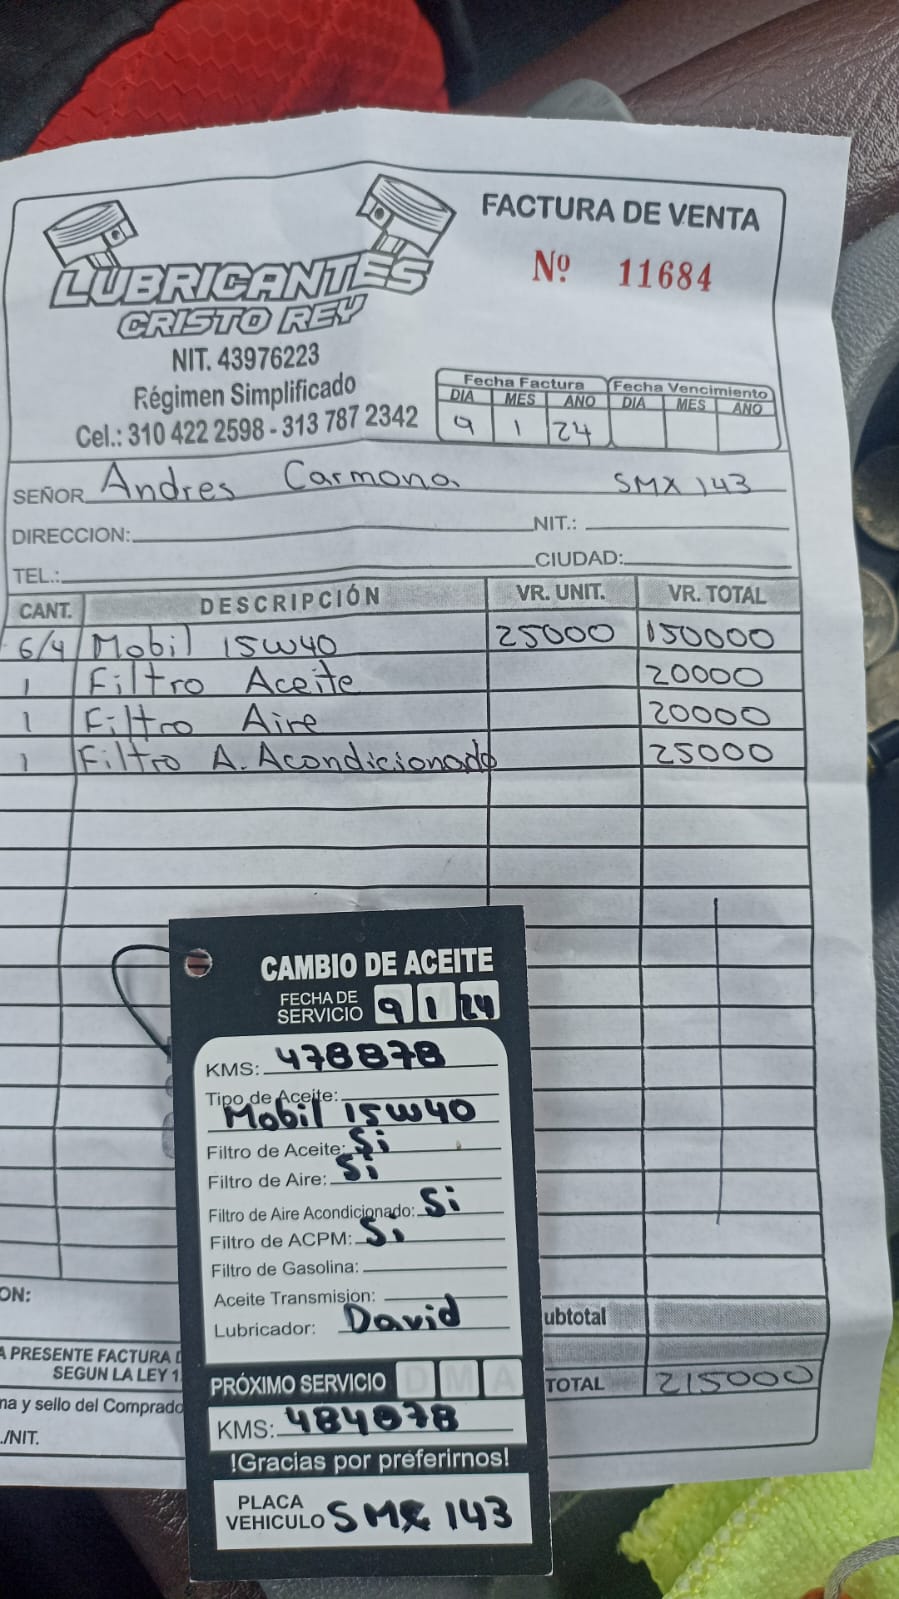 FACTURA DE VENTA
Nº 11684
LUBRICANTES
CRISTO REY
NIT. 43976223
Régimen Simplificado
Cel.: 310 422 2598 - 313 787 2342
Fecha Factura Fecha Vencimiento
DIA MES AÑO DIA MES AÑO
9 1 24
SEÑOR Andres Carmona. SMX 143
DIRECCION: NIT.:
TEL.: CIUDAD:
CANT. DESCRIPCIÓN VR. UNIT. VR. TOTAL
6/4 Mobil 15W40 25000 150000
1 Filtro Aceite 20000
1 Filtro Aire 20000
1 Filtro A. Acondicionado 25000
ON:
A PRESENTE FACTURA
SEGUN LA LEY 1
na y sello del Comprado
./NIT.
ubtotal
TOTAL 215000
CAMBIO DE ACEITE
FECHA DE
SERVICIO 9 1 24
KMS: 478878
Tipo de Aceite:
Mobil 15W40
Filtro de Aceite: Si
Filtro de Aire: Si
Filtro de Aire Acondicionado: Si
Filtro de ACPM: Si
Filtro de Gasolina:
Aceite Transmision:
Lubricador: David
PRÓXIMO SERVICIO D M A
KMS: 484878
!Gracias por preferirnos!
PLACA
VEHICULO SMX 143